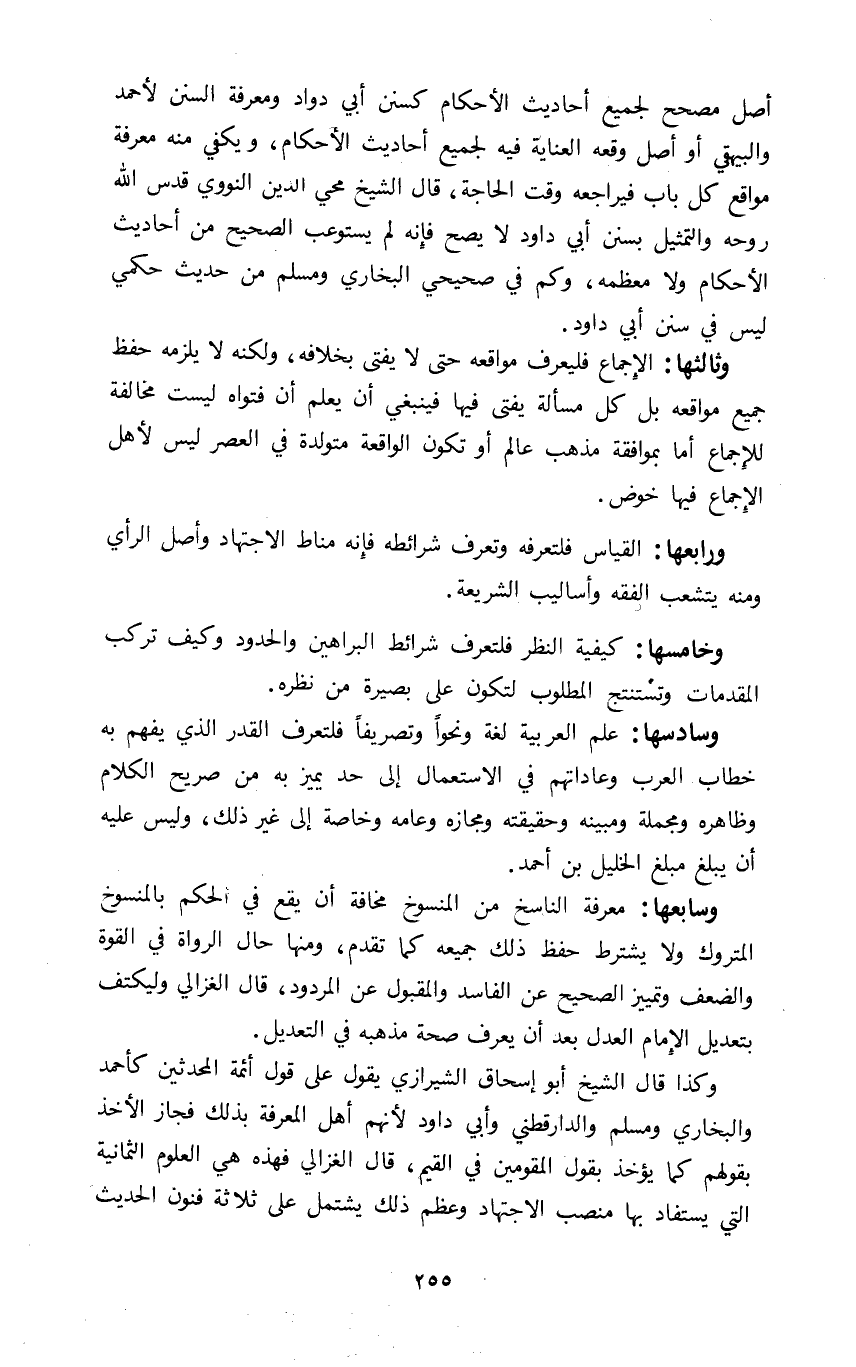 أصل مصحح لجميع أحاديث الأحكام كسنن أبي دواد ومعرفة السنن لأحمد
والبيهقي أو أصل وقعه العناية فيه لجميع أحاديث الأحكام، ويكفي منه معرفة
مواقع كل باب فيراجعه وقت الحاجة، قال الشيخ محي الدين النووي قدس الله
روحه والتمثيل بسنن أبي داود لا يصح فإنه لم يستوعب الصحيح من أحاديث
الأحكام ولا معظمه، وكم في صحيحي البخاري ومسلم من حديث حكمي
ليس في سنن أبي داود.
وثالثها: الإجماع فليعرف مواقعه حتى لا يفتى بخلافه، ولكنه لا يلزمه حفظ
جميع مواقعه بل كل مسألة يفتى فيها فينبغي أن يعلم أن فتواه ليست مخالفة
للإجماع أما بموافقة مذهب عالم أو تكون الواقعة متولدة في العصر ليس لأهل
الإجماع فيها خوض.
ورابعها: القياس فلتعرفه وتعرف شرائطه فإنه مناط الاجتهاد وأصل الرأي
ومنه يتشعب الفقه وأساليب الشريعة.
وخامسها: كيفية النظر فلتعرف شرائط البراهين والحدود وكيف تركب
المقدمات وتسْتنتج المطلوب لتكون على بصيرة من نظره.
وسادسها: علم العربية لغة ونحواً وتصريفاً فلتعرف القدر الذي يفهم به
خطاب العرب وعاداتهم في الاستعمال إلى حد يميز به من صريح الكلام
وظاهره ومجملة ومبينه وحقيقته ومجازه وعامه وخاصة إلى غير ذلك، وليس عليه
أن يبلغ مبلغ الخليل بن أحمد.
وسابعها: معرفة الناسخ من المنسوخ مخافة أن يقع في الحكم بالمنسوخ
المتروك ولا يشترط حفظ ذلك جميعه كما تقدم، ومنها حال الرواة في القوة
والضعف وتمييز الصحيح عن الفاسد والمقبول عن المردود، قال الغزالي وليكتف
بتعديل الإمام العدل بعد أن يعرف صحة مذهبه في التعديل.
وكذا قال الشيخ أبو إسحاق الشيرازي يقول على قول أئمة المحدثين كأحمد
والبخاري ومسلم والدارقطني وأبي داود لأنهم أهل المعرفة بذلك فجاز الأخذ
بقولهم كما يؤخذ بقول المقومين في القيم، قال الغزالي فهذه هي العلوم الثمانية
التي يستفاد بها منصب الاجتهاد وعظم ذلك يشتمل على ثلاثة فنون الحديث
٢٥٥